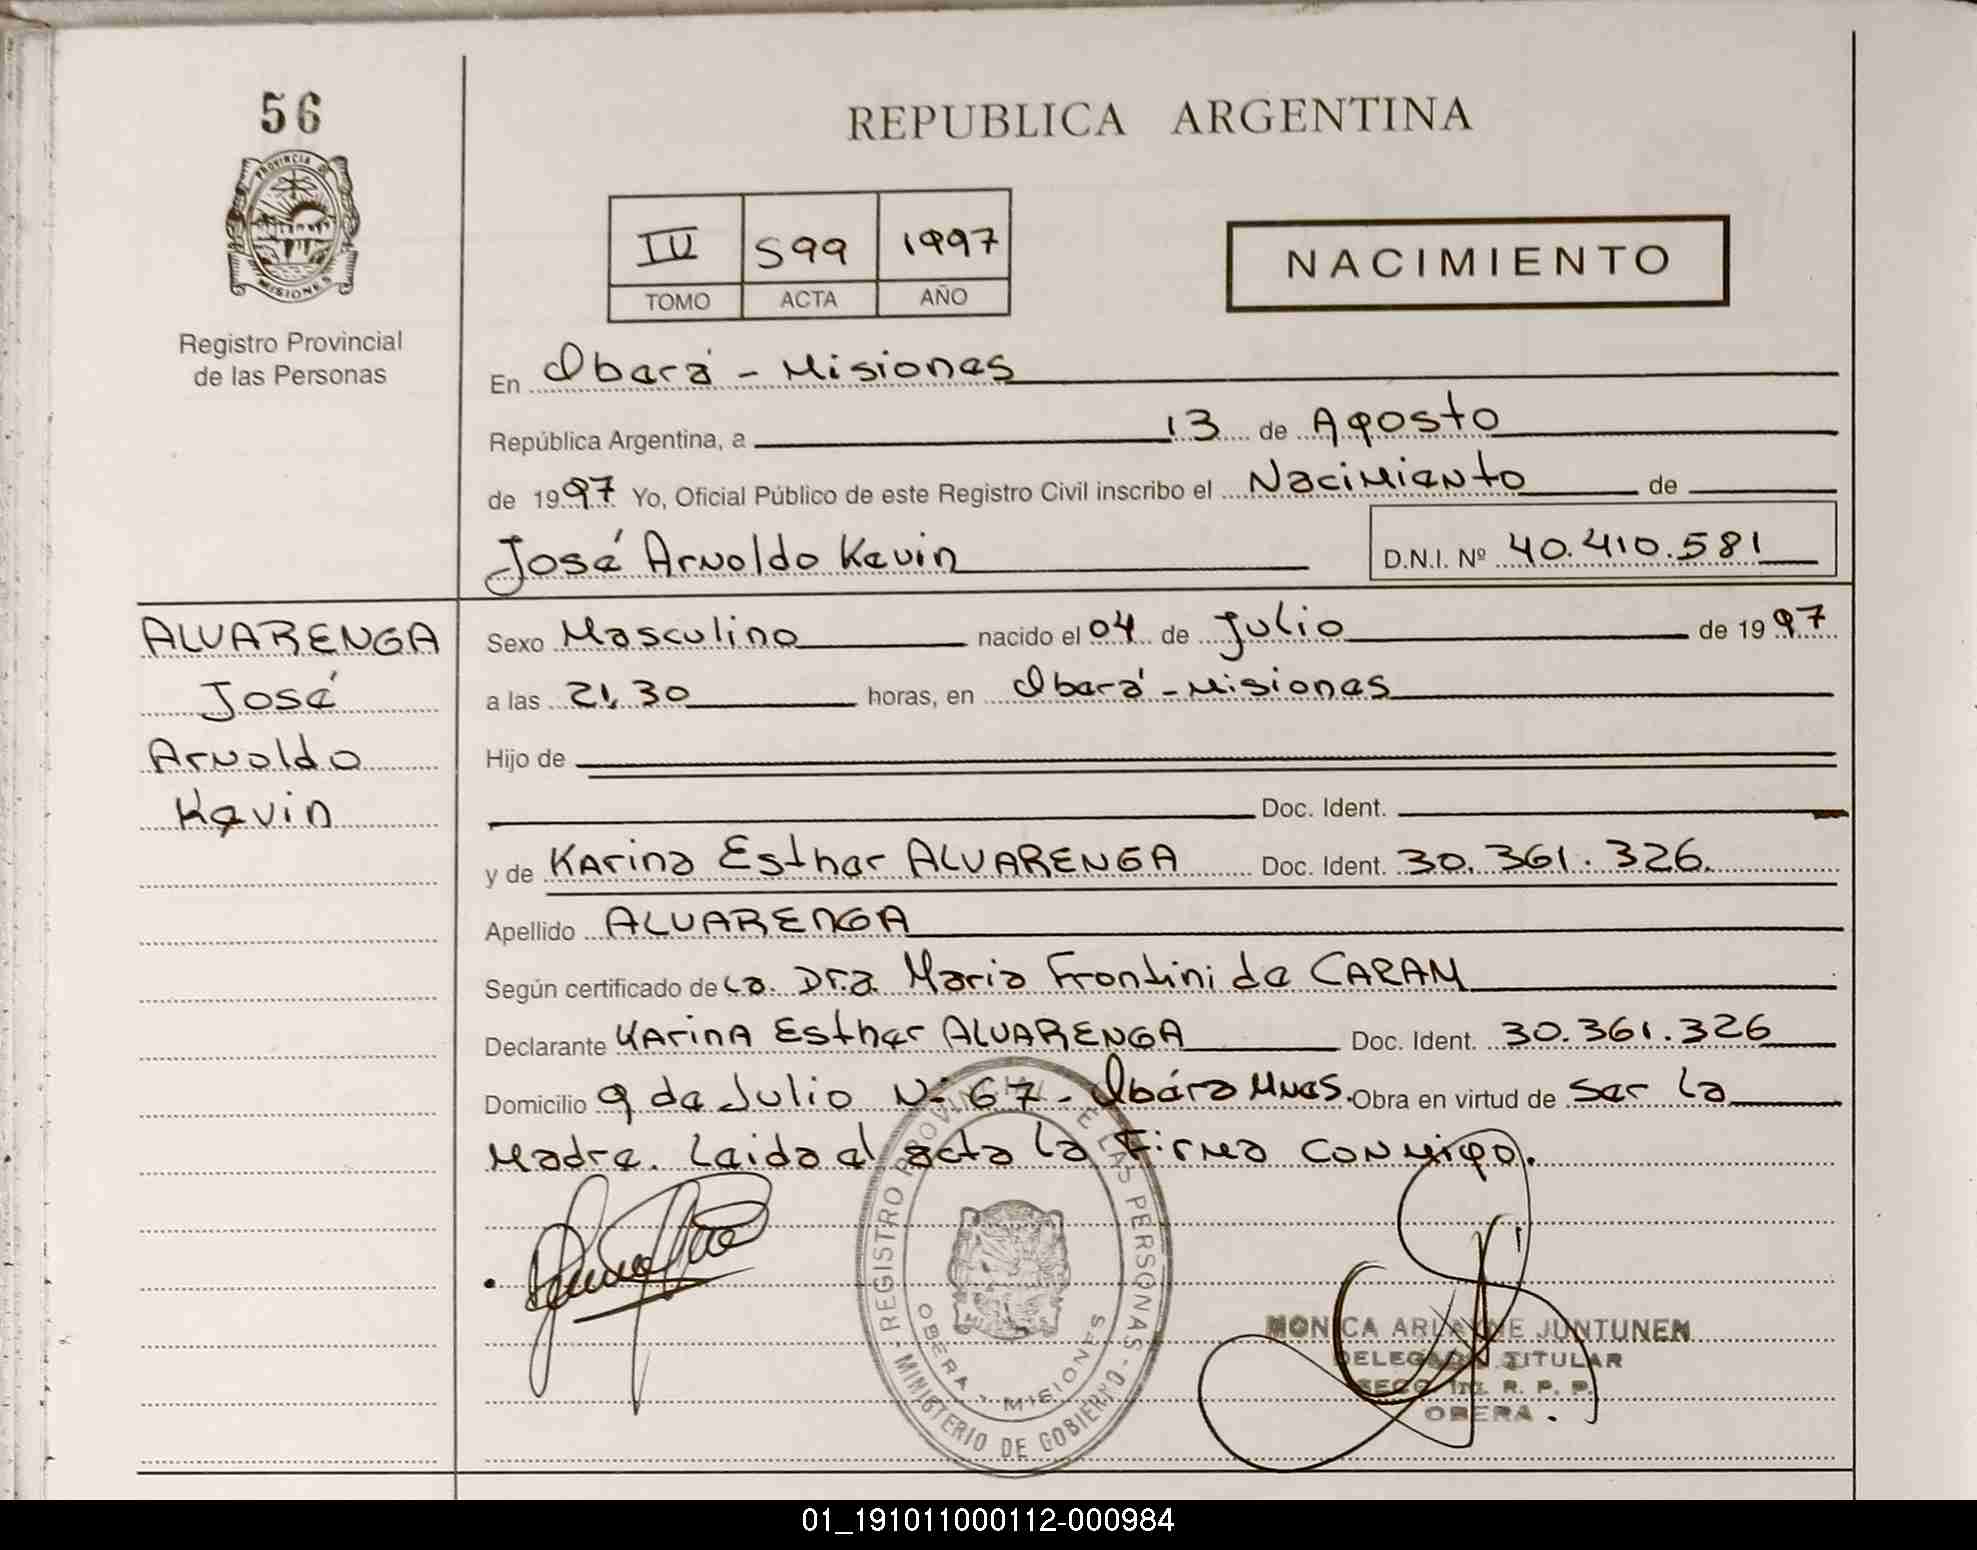 56
PROVINCIA DE
MISIONES
Registro Provincial
de las Personas
REPUBLICA ARGENTINA
IV 599 1997
TOMO ACTA AÑO
NACIMIENTO
En Oberá - Misiones
República Argentina, a 13 de Agosto
de 1997 Yo, Oficial Público de este Registro Civil inscribo el Nacimiento de
José Arnoldo Kevin D.N.I. Nº 40.410.581
ALVARENGA
José
Arnoldo
Kevin
Sexo Masculino nacido el 04 de Julio de 1997
a las 21,30 horas, en Oberá - Misiones
Hijo de
Doc. Ident.
y de Karina Esther ALVARENGA Doc. Ident. 30.361.326.
Apellido ALVARENGA
Según certificado de La Dra. Maria Frontini de CARAM
Declarante Karina Esther ALVARENGA Doc. Ident. 30.361.326
Domicilio 9 de Julio Nº 67 - Oberá Mnes. Obra en virtud de Ser la
Madre. Leida el acta la Firma conmigo.
REGISTRO PROVINCIAL DE LAS PERSONAS - MINISTERIO DE GOBIERNO -
OBERA - MISIONES
MONICA ARLAYNE JUNTUNEN
DELEGADA TITULAR
SECC. R. P. P.
OBERA
01_191011000112-000984